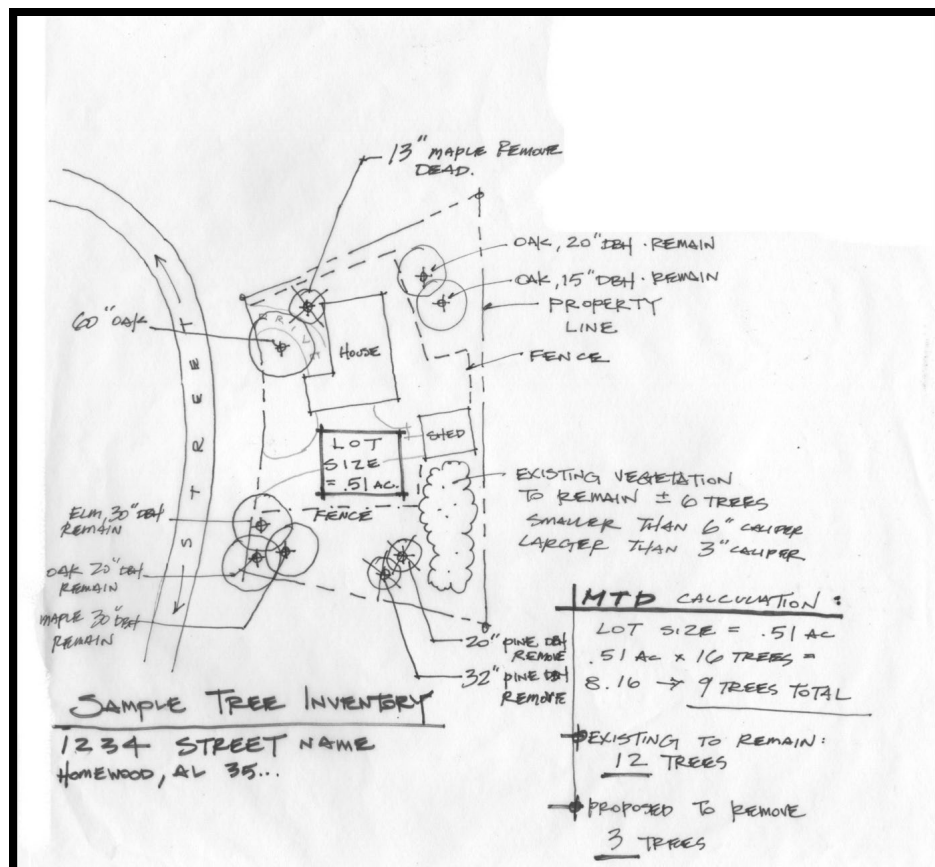 13" MAPLE REMOVE
DEAD.
OAK, 20" DBH · REMAIN
OAK, 15" DBH · REMAIN
PROPERTY
LINE
FENCE
60" OAK
DRIVE
HOUSE
STREET
LOT
SIZE
= .51 AC.
SHED
FENCE
EXISTING VEGETATION
TO REMAIN ± 6 TREES
SMALLER THAN 6" CALIPER
LARGER THAN 3" CALIPER
ELM, 30" DBH
REMAIN
OAK 20" DBH
REMAIN
MAPLE 30" DBH
REMAIN
20" PINE DBH
REMOVE
32" PINE DBH
REMOVE
MTD CALCULATION:
LOT SIZE = .51 AC
.51 AC x 16 TREES =
8.16 → 9 TREES TOTAL
EXISTING TO REMAIN:
12 TREES
PROPOSED TO REMOVE
3 TREES
SAMPLE TREE INVENTORY
1234 STREET NAME
HOMEWOOD, AL 35...